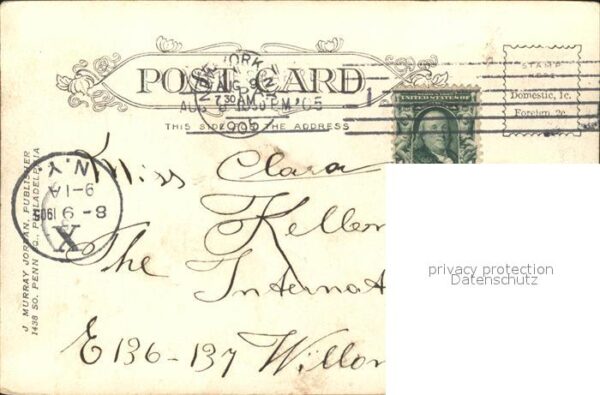 POST CARD
NEW YORK, N.Y.
AUG 8
7 30 PM
1905
AUG 8 PM '05
THIS SIDE THE ADDRESS
STAMP
HERE
Domestic, 1c.
Foreign 2c.
UNITED STATES OF
N.Y.
9-1A
8-9 1905
X
J. MURRAY JORDAN, PUBLISHER
1438 SO. PENN SQ., PHILADELPHIA
Miss Clara
Keller
The
Internat
E 136-137 Willo
privacy protection
Datenschutz